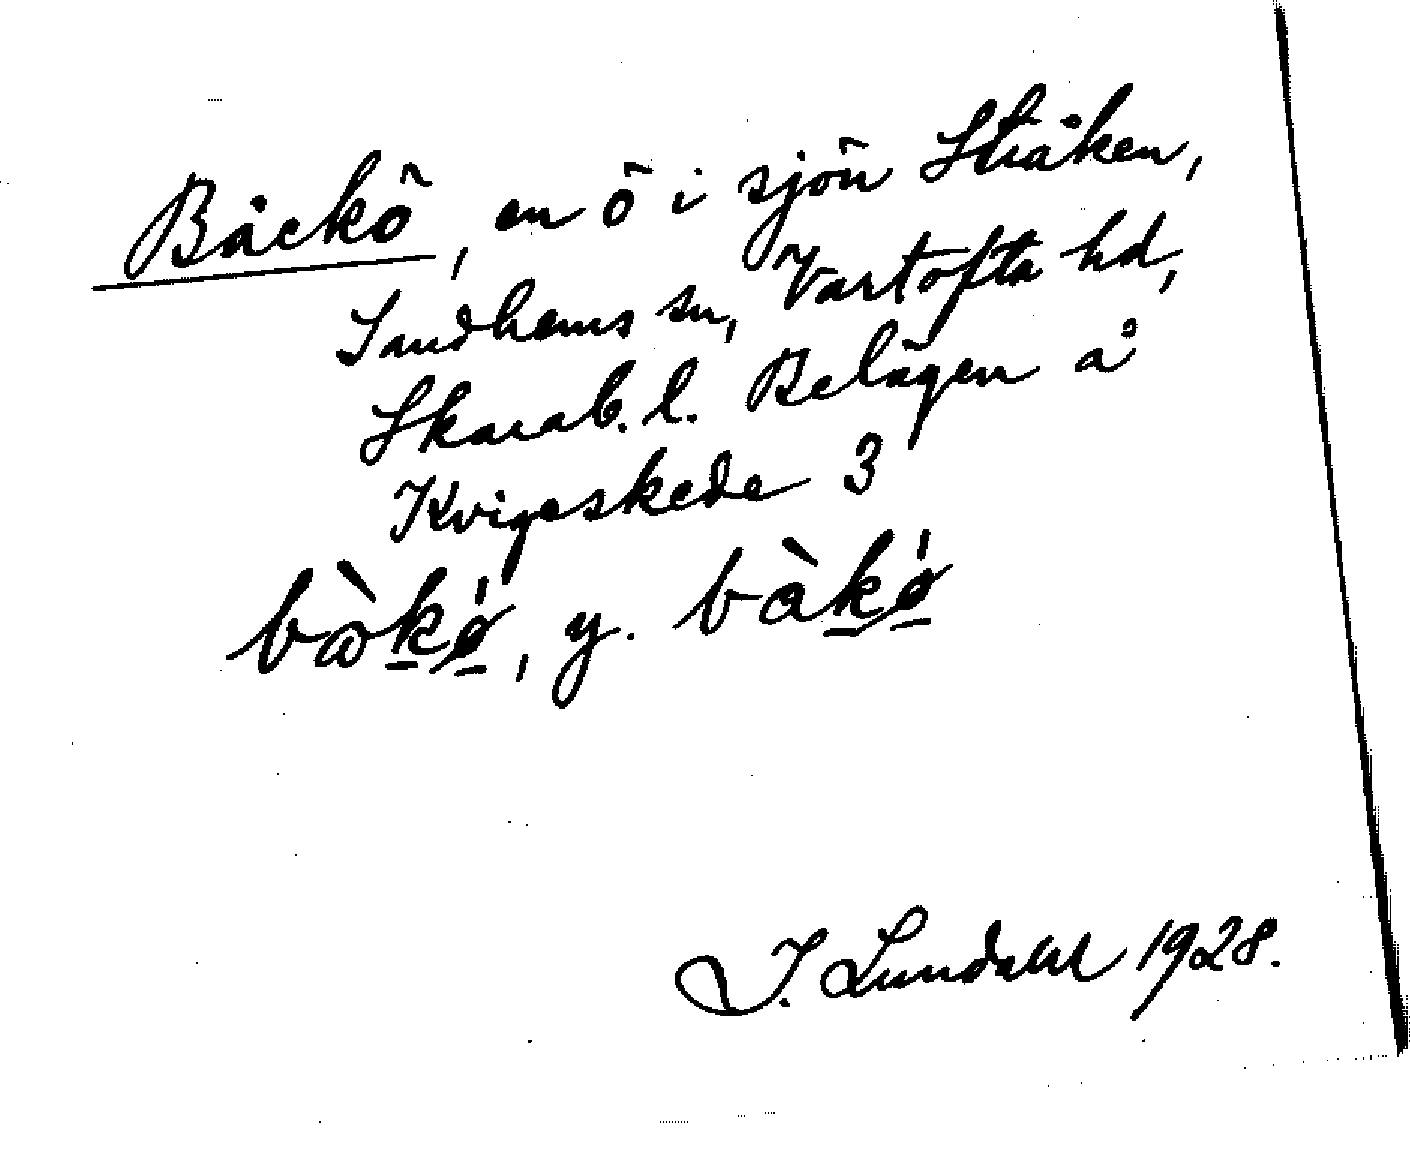 Båckö, en ö i sjön Stråken,
Sandhems sn, Vartofta hd,
Skarab. l. Belägen å
Kvigeskede 3
bòkö́, y. bàkö́
I. Lundahl 1928.